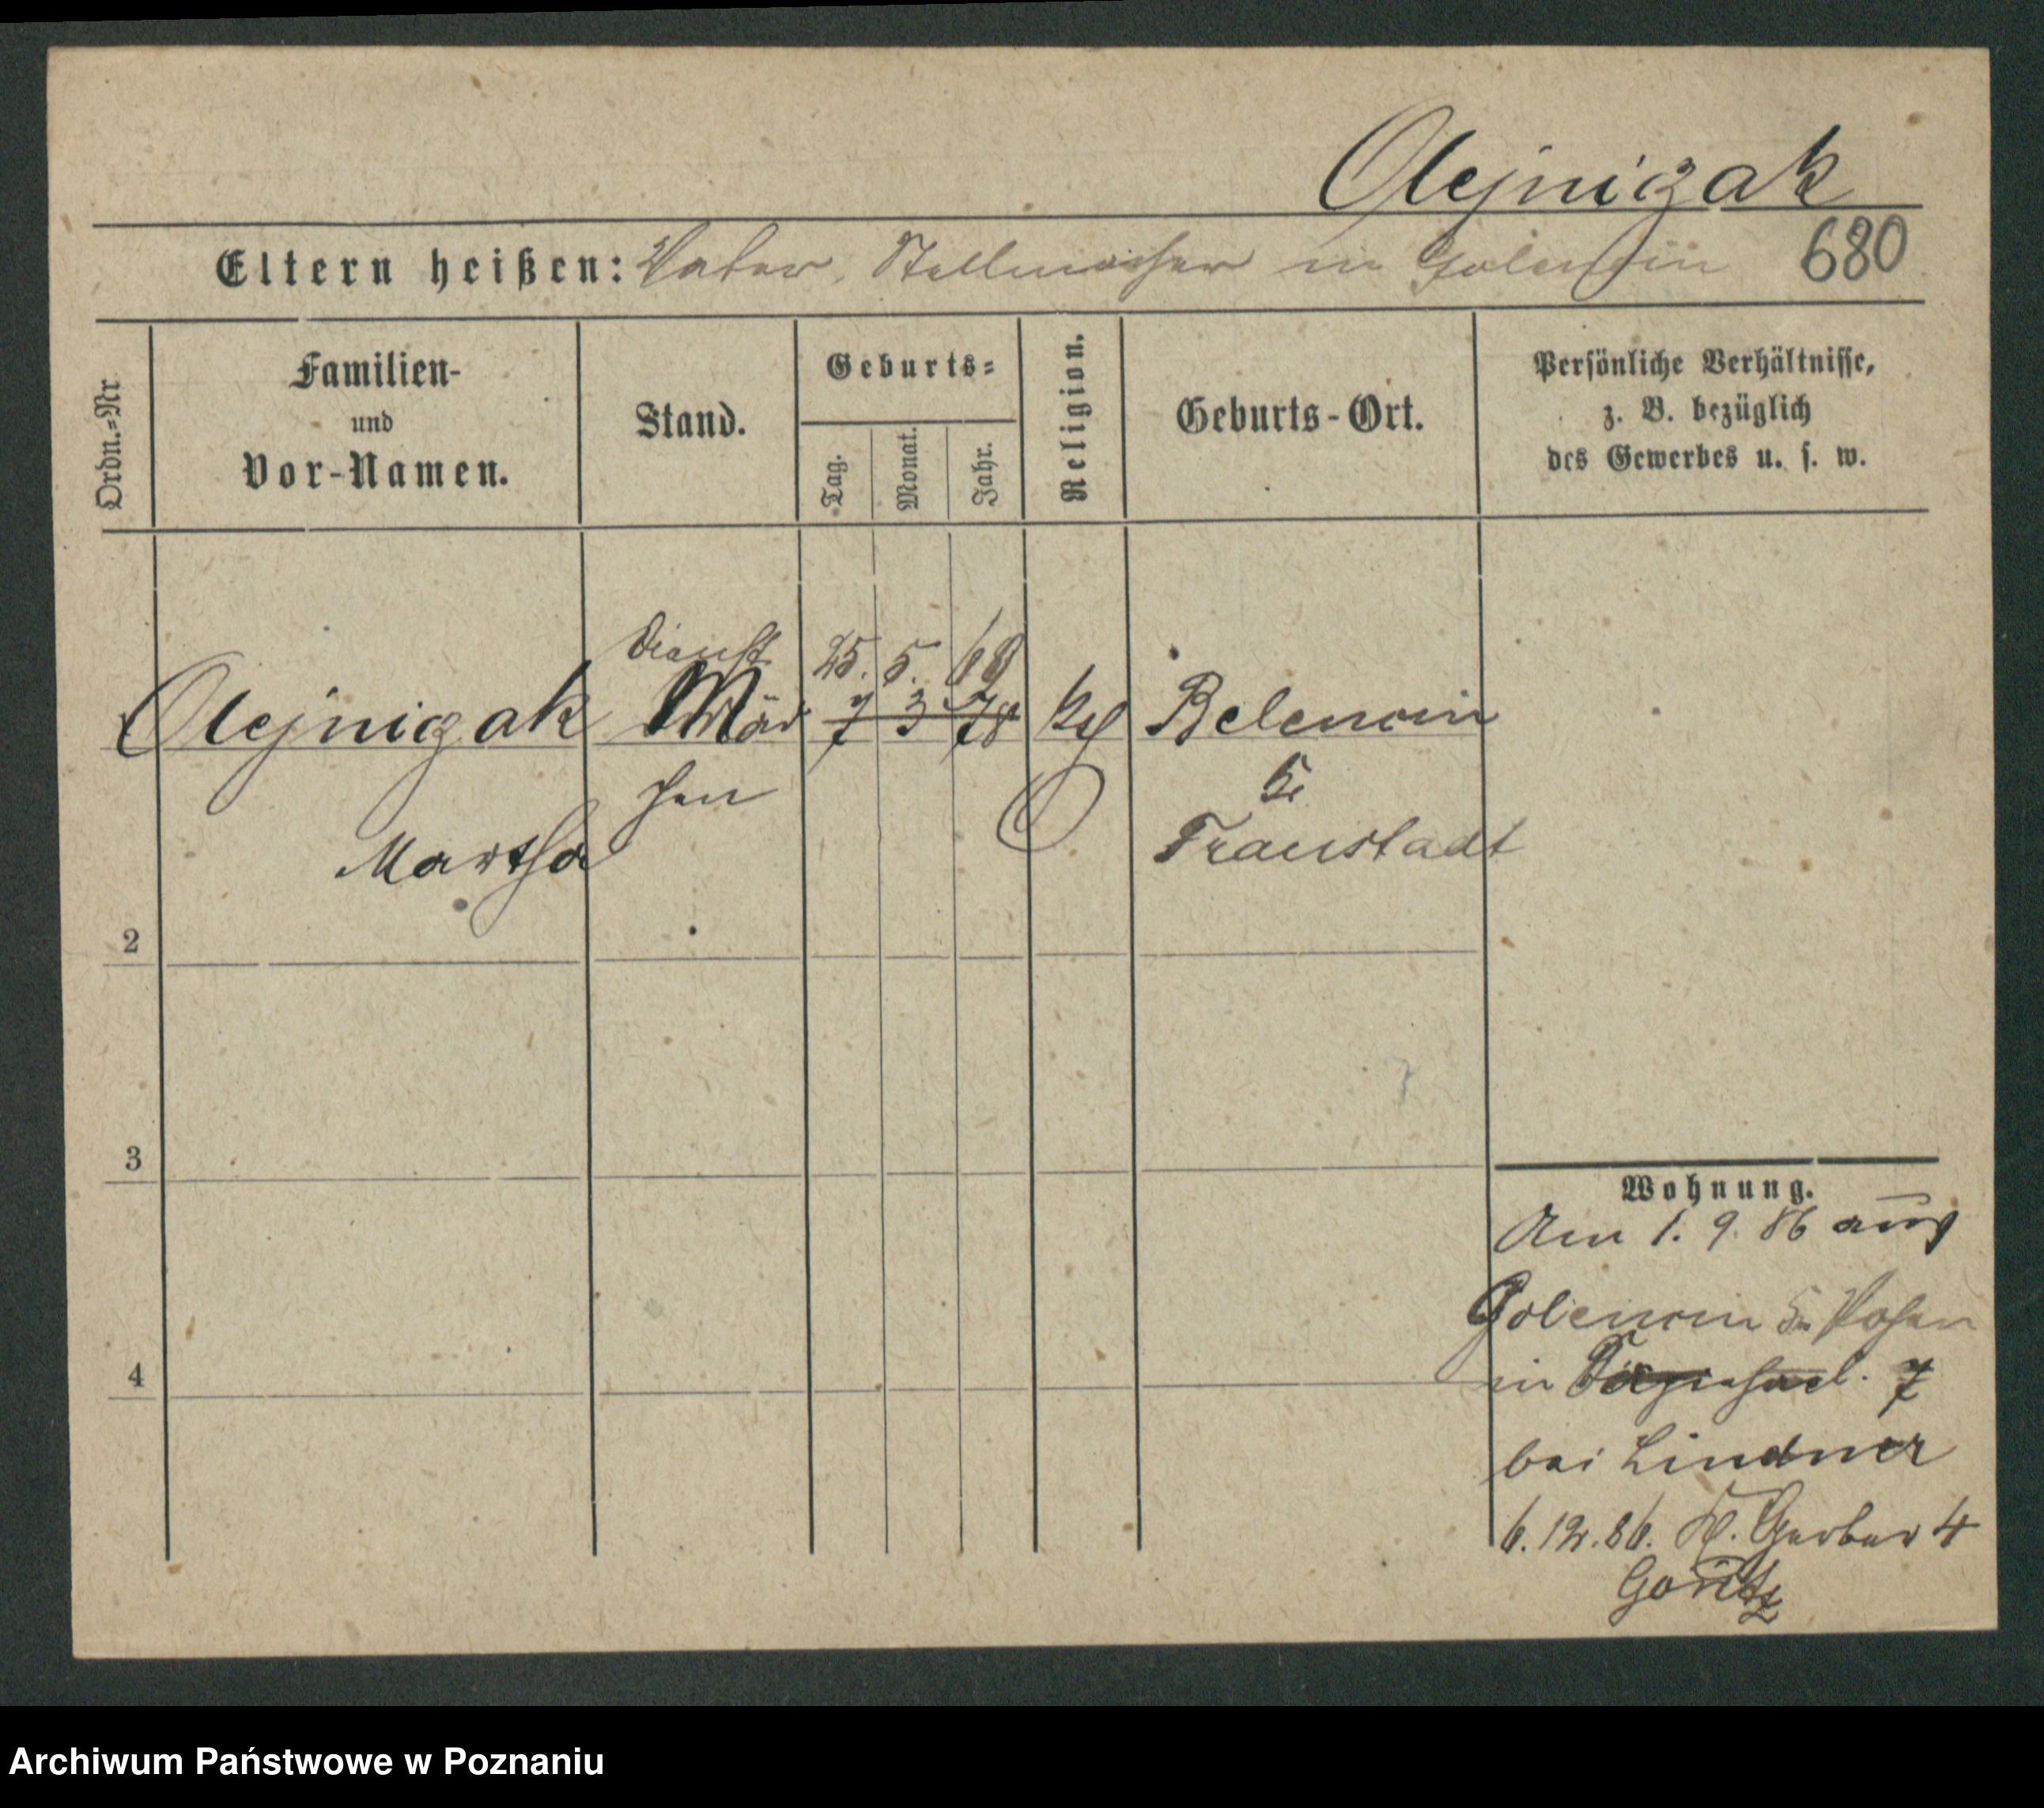 Olejniczak
680
Eltern heißen: Vater, Stellmacher in Golencin
Ordn.=Nr
Familien-
und
Vor-Namen.
Stand.
Geburts=
Tag.
Monat.
Jahr.
Religion.
Geburts-Ort.
Persönliche Verhältnisse,
z. B. bezüglich
des Gewerbes u. s. w.
Dienst 25. 5. 68
Olejniczak Mäd 7 3 78 kg Belencin
chen Kr
Martha Fraustadt
2
3
4
Wohnung.
Am 1. 9. 86 aus
Golencin Kr Posen
in 7
bei Lindner
6. 12. 86. Kl. Gerber 4
Goritz
Archiwum Państwowe w Poznaniu